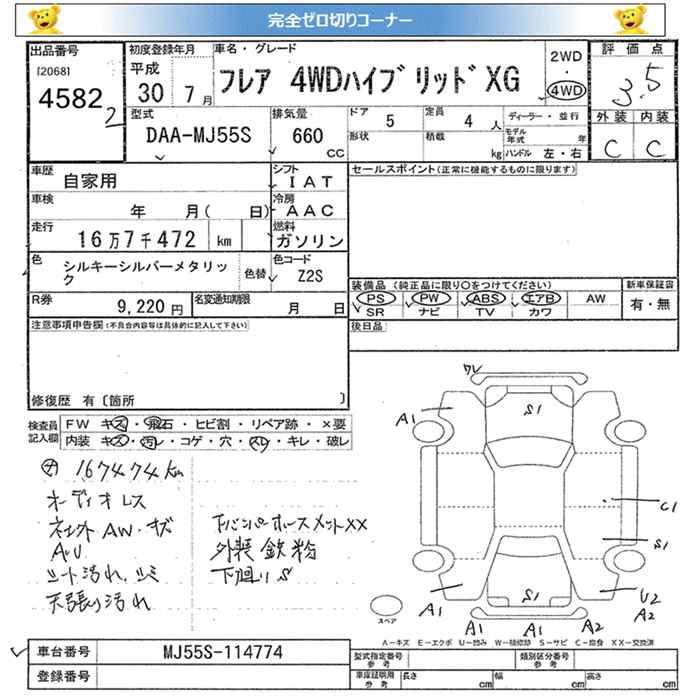 完全ゼロ切りコーナー
出品番号
[2068]
4582
2
初度登録年月
平成
30 7月
車名・グレード
フレア 4WDハイブリッドXG
2WD
・
4WD
評価点
3.5
型式
DAA-MJ55S
排気量
660
cc
ドア
5
定員
4 人
形状
積載
kg
ディーラー・並行
モデル年式 年
ハンドル 左・右
外装 内装
C C
車歴
自家用
シフト
IAT
車検
年 月( 日)
冷房
AAC
走行
16万7千472 km
燃料
ガソリン
色
シルキーシルバーメタリック
色替
色コード
Z2S
R券
9,220円
名変通知期限
月 日
セールスポイント(正常に機能するものに限ります)
装備品 (純正品に限り○をつけてください)
PS PW ABS エアB AW
SR ナビ TV カワ
新車保証書
有・無
後日品
注意事項申告欄(不具合内容等は具体的に記入して下さい)
修復歴 有〔箇所 〕
検査員記入欄
FW キズ・飛石・ヒビ割・リペア跡・×要
内装 キズ・汚レ・コゲ・穴・スレ・キレ・破レ
167474km
オーディオレス
社外AW・キズ
シート汚れ、シミ
天張り汚れ
外装鉄粉
下廻りS
ワレ
A1
S1
C1
S1
S1
A1
A1
A1
A2
U2
A2
スペア
A-キズ E-エクボ U-凹み W-補修跡 S-サビ C-腐食 XX-交換済
車台番号
MJ55S-114774
登録番号
型式指定番号
参考
類別区分番号
参考
車庫証明用
参考
長さ cm
幅 cm
高さ cm